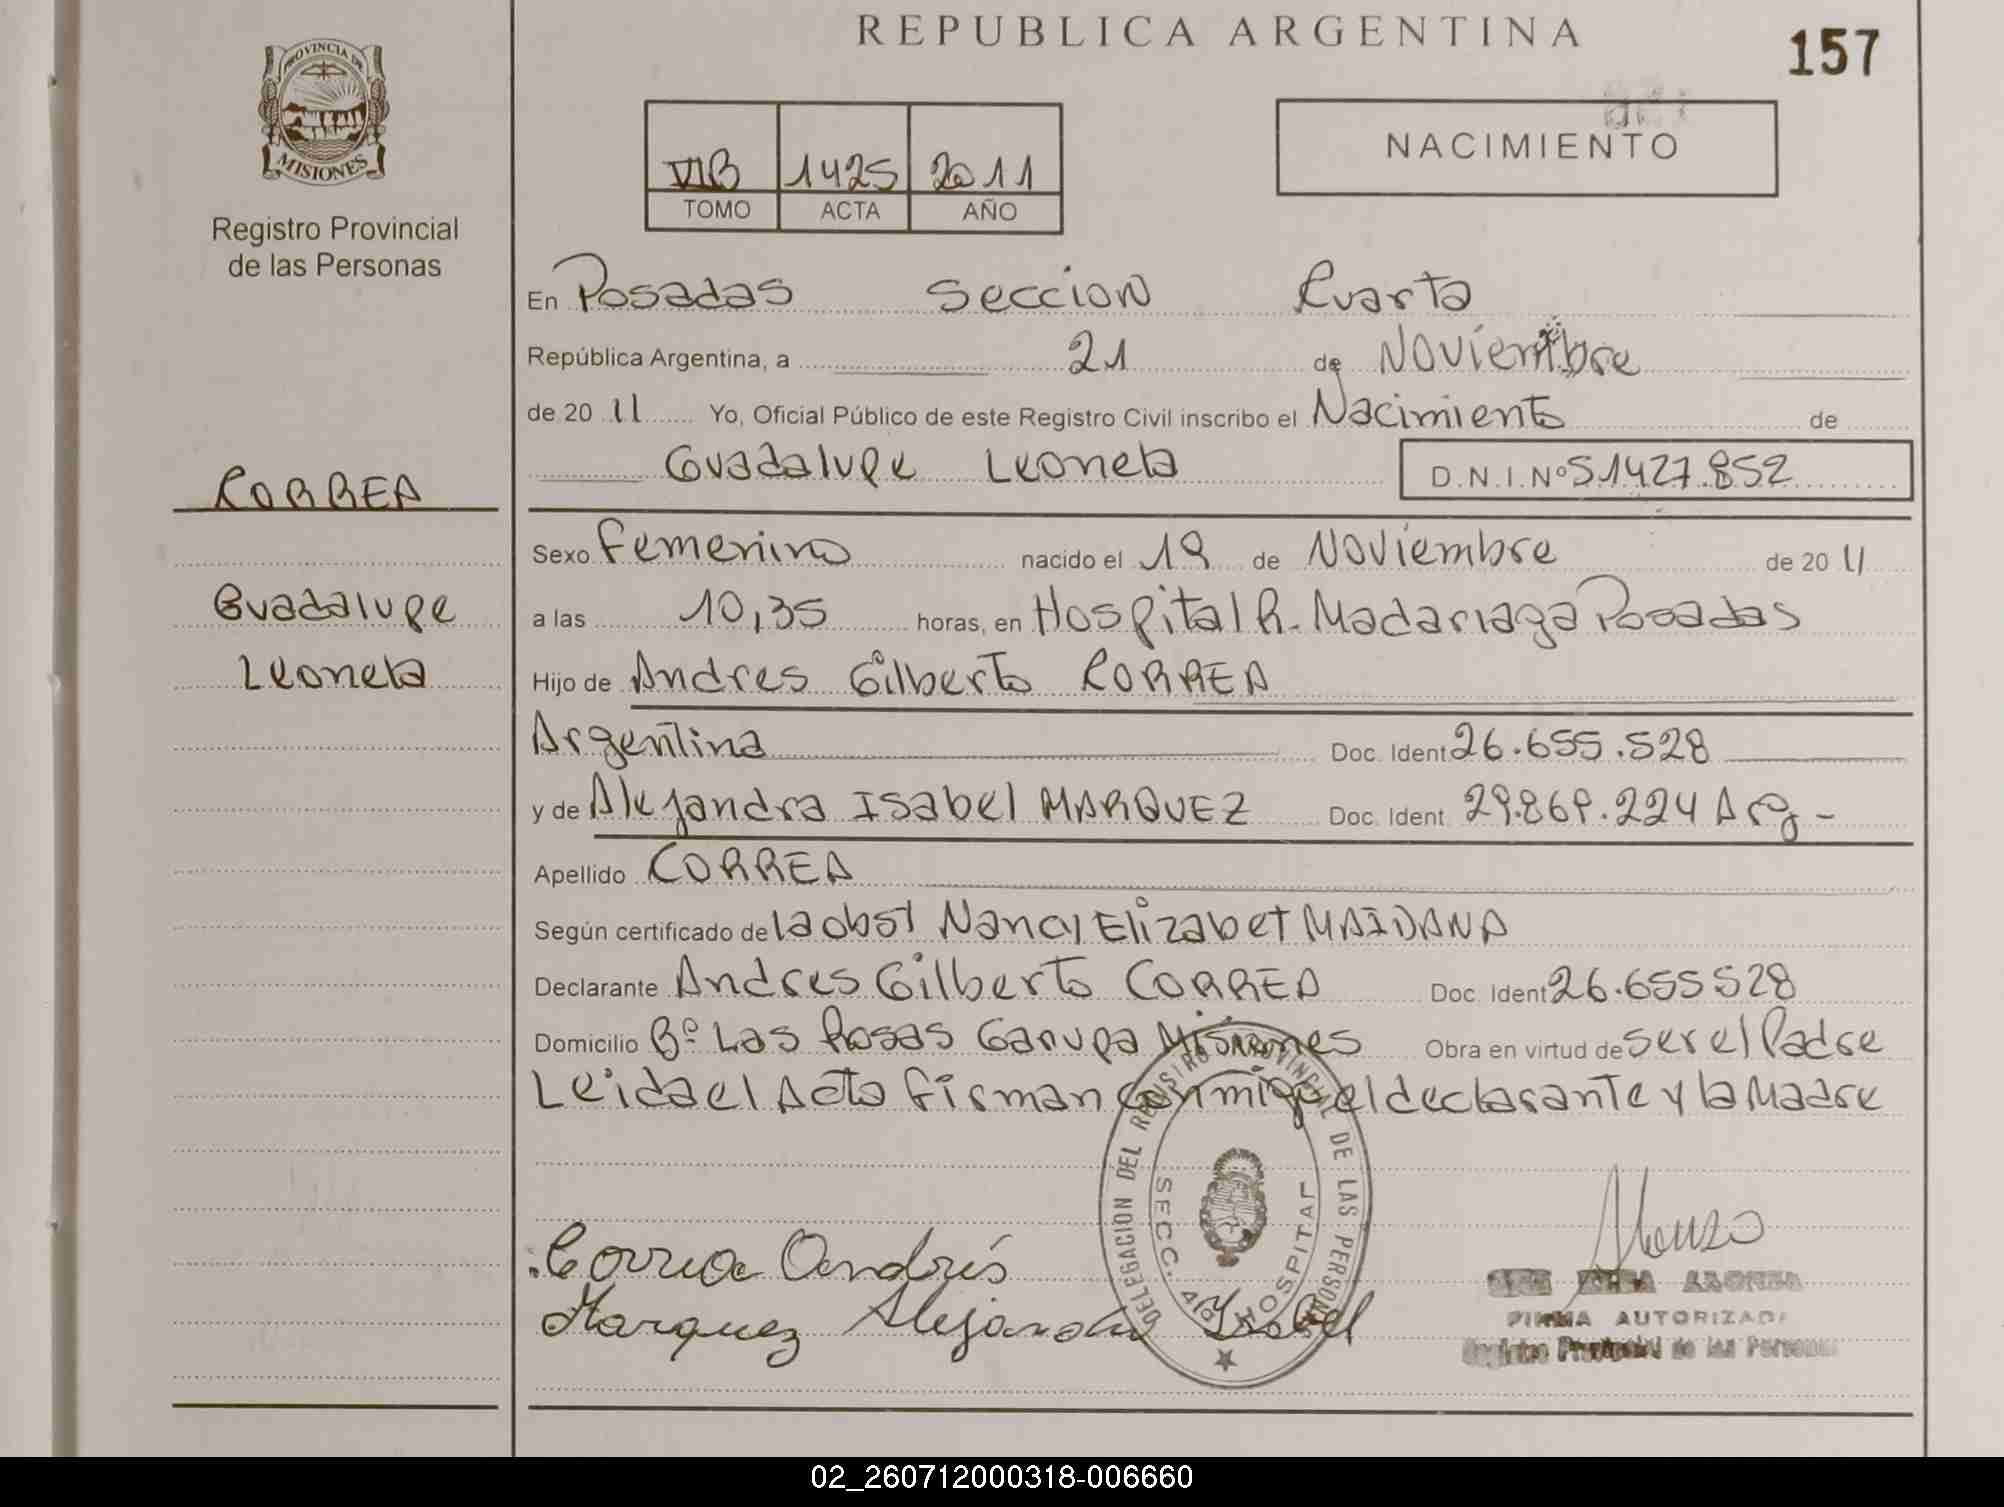 REPUBLICA ARGENTINA
157
PROVINCIA DE
MISIONES
Registro Provincial
de las Personas
VIB 1425 2011
TOMO ACTA AÑO
NACIMIENTO
En Posadas Seccion Cuarta
República Argentina, a 21 de Noviembre
de 20 11 Yo, Oficial Público de este Registro Civil inscribo el Nacimiento de
Guadalupe Leonela D.N.I.Nº 51427.852
CORREA
Guadalupe
Leonela
Sexo Femenino nacido el 19 de Noviembre de 20 11
a las 10,35 horas, en Hospital R. Madariaga Posadas
Hijo de Andres Gilberto CORREA
Argentina Doc. Ident. 26.655.528
y de Alejandra Isabel MARQUEZ Doc. Ident. 29.869.224 Arg-
Apellido CORREA
Según certificado de la obst Nancy Elizabet MAIDANA
Declarante Andres Gilberto CORREA Doc. Ident 26.655528
Domicilio Bº Las Rosas Garupa Misiones Obra en virtud de ser el Padre
Leida el Acta firman conmigo el declarante y la Madre
DELEGACION DEL REGISTRO PROVINCIAL DE LAS PERSONAS
SECC. 4ta HOSPITAL
Correa Andrés
Marquez Alejandra Isabel
Alonzo
FIRMA AUTORIZADA
Registro Provincial de las Personas
02_260712000318-006660